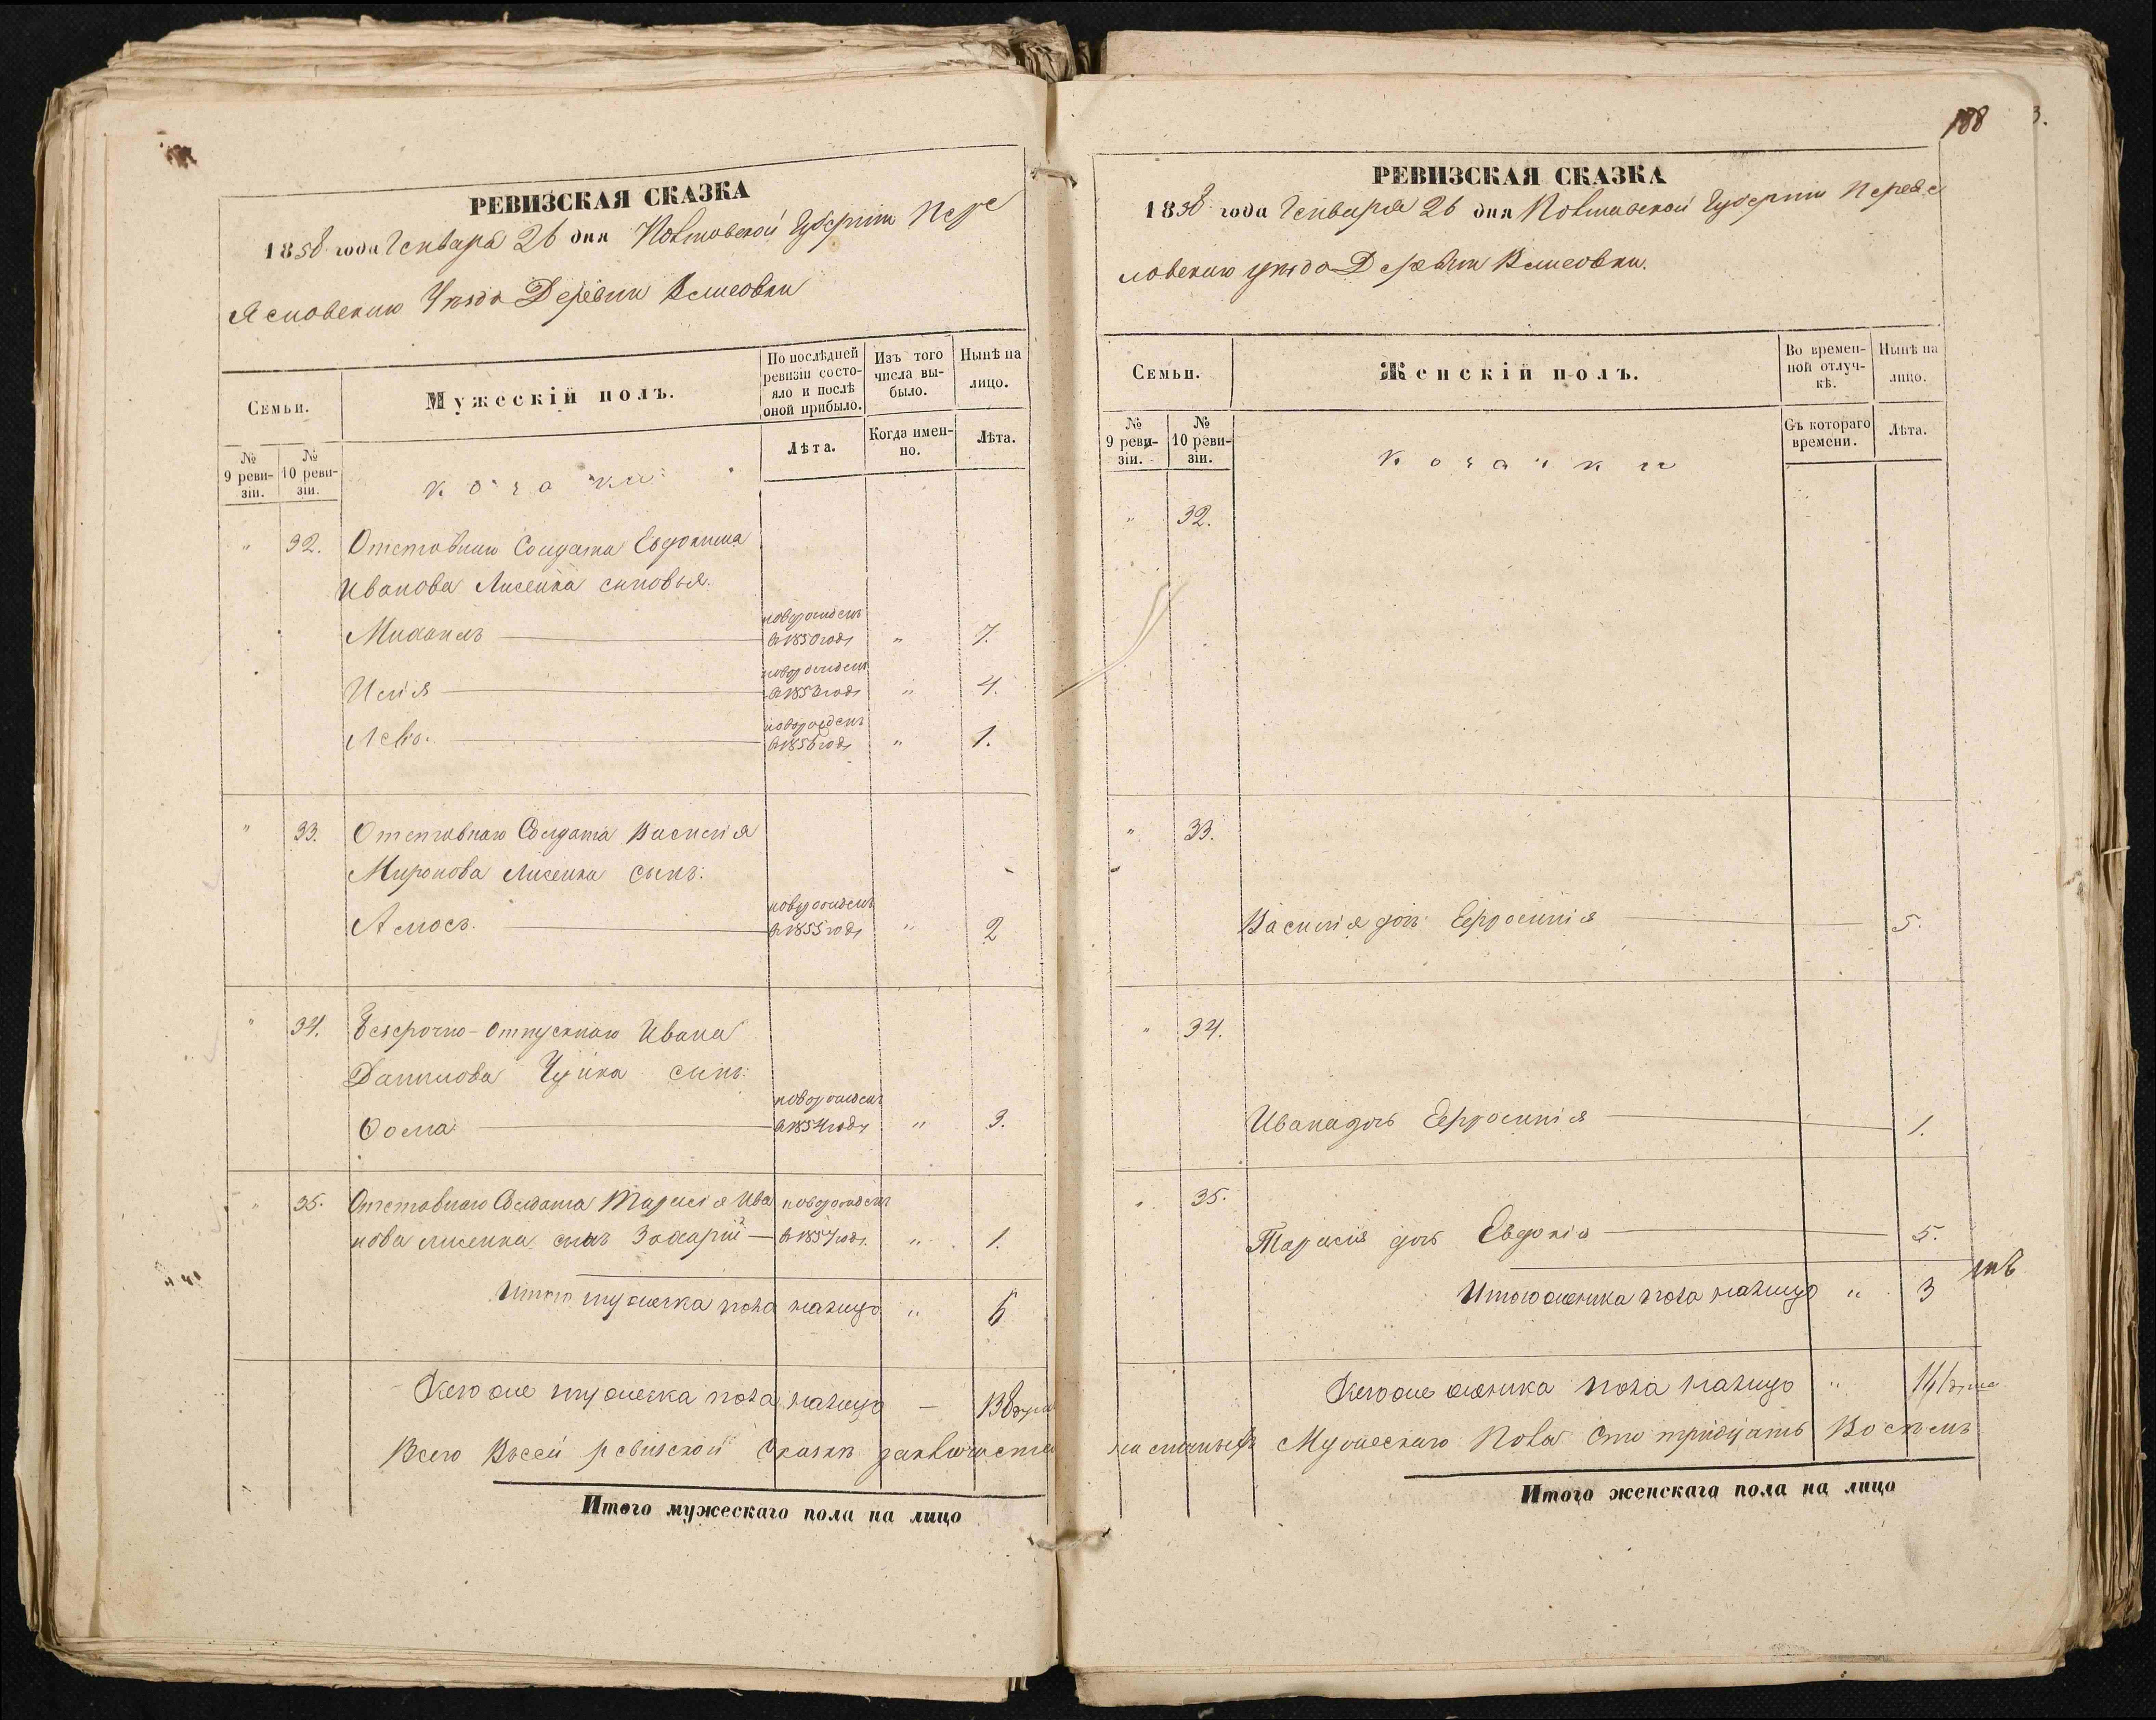 РЕВИЗСКАЯ СКАЗКА
1858 года Генваря 26 дня Полтавской Губернии Пере
яславскаго Уезда Деревни Власовки
Семьи.
Мужескій полъ.
По послѣдней ревизіи состояло и послѣ оной прибыло.
Изъ того числа выбыло.
Нынѣ на лицо.
№ 9 ревизіи.
№ 10 ревизіи.
Козаки
Лѣта.
Когда именно.
Лѣта.
" 32. Отставнаго Солдата Евдокима
Иванова Лисенка сыновья:
Михаилъ новорожденъ в 1850 году " 7.
Илія новорожденъ в 1853 году " 4.
Левъ. новорожденъ в 1856 году " 1.
" 33. Отставнаго Солдата Василія
Миронова Лисенка сынъ:
Амосъ. новорожденъ в 1855 году " 2
" 34. Безсрочно-отпускнаго Ивана
Данилова Чуйка сынъ:
Ѳома новорожденъ в 1854 году " 3.
" 35. Отставнаго Солдата Тарасія Ива новорожденъ
нова Лисенка сынъ Захарій в 1857 году. " 1.
Итого мужеска пола налицо " 6
Всего же мужеска пола налицо — 138 душ
Всего въ сей ревизской сказкѣ заключается
Итого мужескаго пола на лицо
188
3.
РЕВИЗСКАЯ СКАЗКА
1858 года Генваря 26 дня Полтавской Губернии Переяс
лавскаго уезда Деревни Власовки.
Семьи.
Женскій полъ.
Во временной отлучкѣ.
Нынѣ на лицо.
№ 9 ревизіи.
№ 10 ревизіи.
Козачки
Съ котораго времени.
Лѣта.
" 32.
" 33.
Василія дочь Ефросинія 5.
" 34.
Ивана дочь Ефросинія 1.
" 35.
Тарасія дочь Евдокія 5.
Итого женска пола налицо " 3
Всего же женска пола налицо " 141 душа
на лицо Мужескаго Пола Сто тридцать Восемь
Итого женскаго пола на лицо